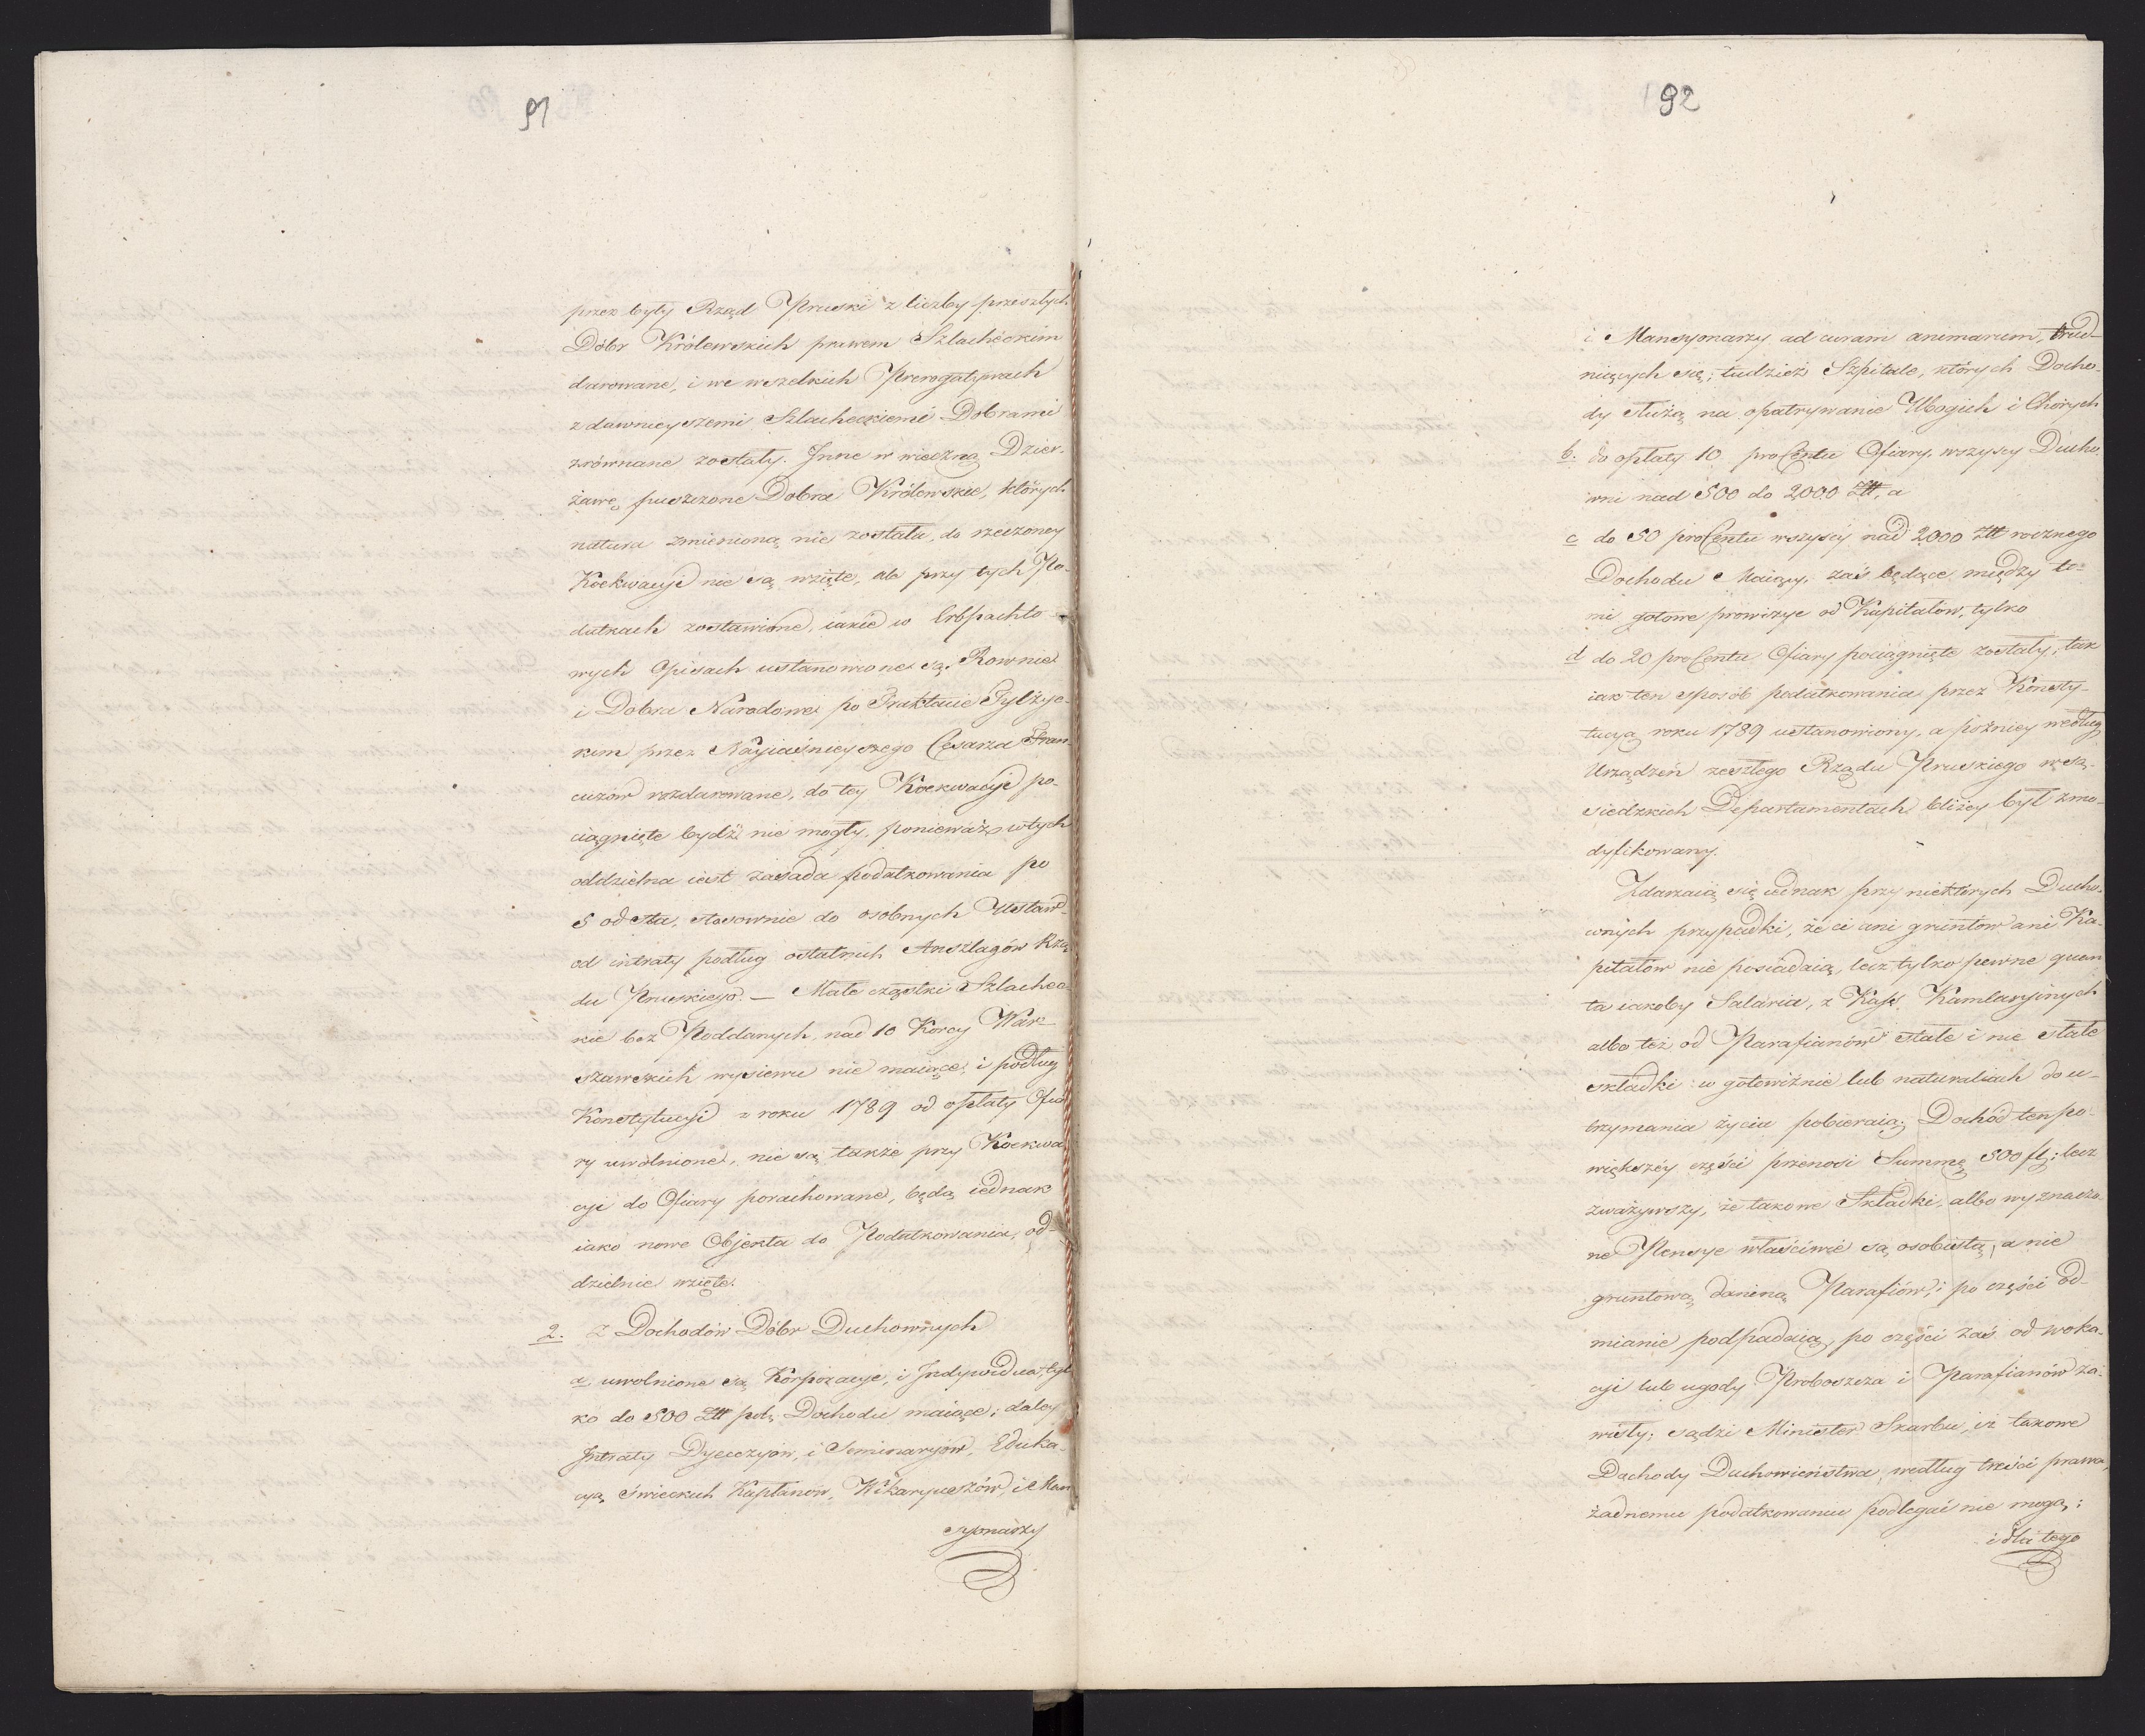 91
przez były Rząd Pruski z liczby przeszłych
Dóbr Królewskich prawem Szlacheckim
darowane, i we wszelkich Prerogatywach
z dawnieyszemi Szlacheckiemi Dobrami
zrównane zostały. Inne w wieczną Dzier-
żawę puszczone Dobra Królewskie, których
natura zmienioną nie została, do rzeczoney
Koekwacyi nie są wzięte, ale przy tych Po-
datkach zostawione, iakie w Erbpachto-
wych Opisach ustanowione są. Rownie
i Dobra Narodowe po Traktacie Tylżyc-
kim przez Nayiaśnieyszego Cesarza Fran-
cuzów rozdarowane, do tey Koekwacyi po-
ciągnięte bydź nie mogły, ponieważ w tych
oddzielna iest zasada podatkowania po
5 od sta, stosownie do osobnych Ustaw
od intraty podług ostatnich Anszlagów Rzą-
du Pruskiego. — Małe cząstki Szlachec-
kie bez Poddanych, nad 10 Korcy War-
szawskich wysiewu nie maiące, i podług
Konstytucyi z roku 1789 od opłaty Ofia-
ry uwolnione, nie są także przy Koekwa-
cyi do Ofiary porachowane, będą iednak
iako nowe Objekta do Podatkowania, od-
dzielnie wzięte.
2. z Dochodów Dóbr Duchownych
a. uwolnione są Korporacye, i Indywidua, tyl-
ko do 500 Złł pol. Dochodu maiące; daley
Intraty Dyecezyów, i Seminaryiów, Eduka-
cyą świeckich Kapłanów, Wikaryuszów, i Man-
syonarzy
92
i Mansyonarzy ad curam animarum, trud-
niących się; tudzież Szpitale, których Docho-
dy służą na opatrywanie Ubogich i Chorych
b. do opłaty 10 proCentu Ofiary, wszyscy Ducho-
wni nad 500 do 2000 Złł, a
c do 50 proCentu wszyscy nad 2000 Złł rocznego
Dochodu Maiący, zaś będące między te-
mi gotowe prowizye od Kapitałów, tylko
d do 20 proCentu Ofiary pociągnięte zostały, tak
iak ten sposób podatkowania przez Konsty-
tucyą roku 1789 ustanowiony, a późniey według
Urządzeń zeszłego Rządu Pruskiego w są-
siedzkich Departamentach bliżey był zmo-
dyfikowany.
Zdarzaią się iednak przy niektórych Ducho-
wnych przypadki, że ci ani gruntow ani Ka-
pitałów nie posiadaią, lecz tylko pewne quan
ta iakoby Salaria, z Kass Kamlaryinych
albo też od Parafianów stałe i nie stałe
składki w gotowiźnie lub naturaliach do u-
trzymania życia pobieraią; Dochód ten po
większéy części przenosi Summę 500 fl; lecz
zważywszy, że takowe Składki, albo wyznaczo-
ne Pensye właściwie są osobistą, a nie
gruntową daniną Parafiów, i po części od-
mianie podpadaią, po części zaś od woka-
cyi lub ugody Proboszcza i Parafianów za-
wisły; sądzi Minister Skarbu, iż takowe
Dochody Duchowieństwa, według treści prawa,
żadnemu podatkowaniu podlegać nie mogą;
i dla tego